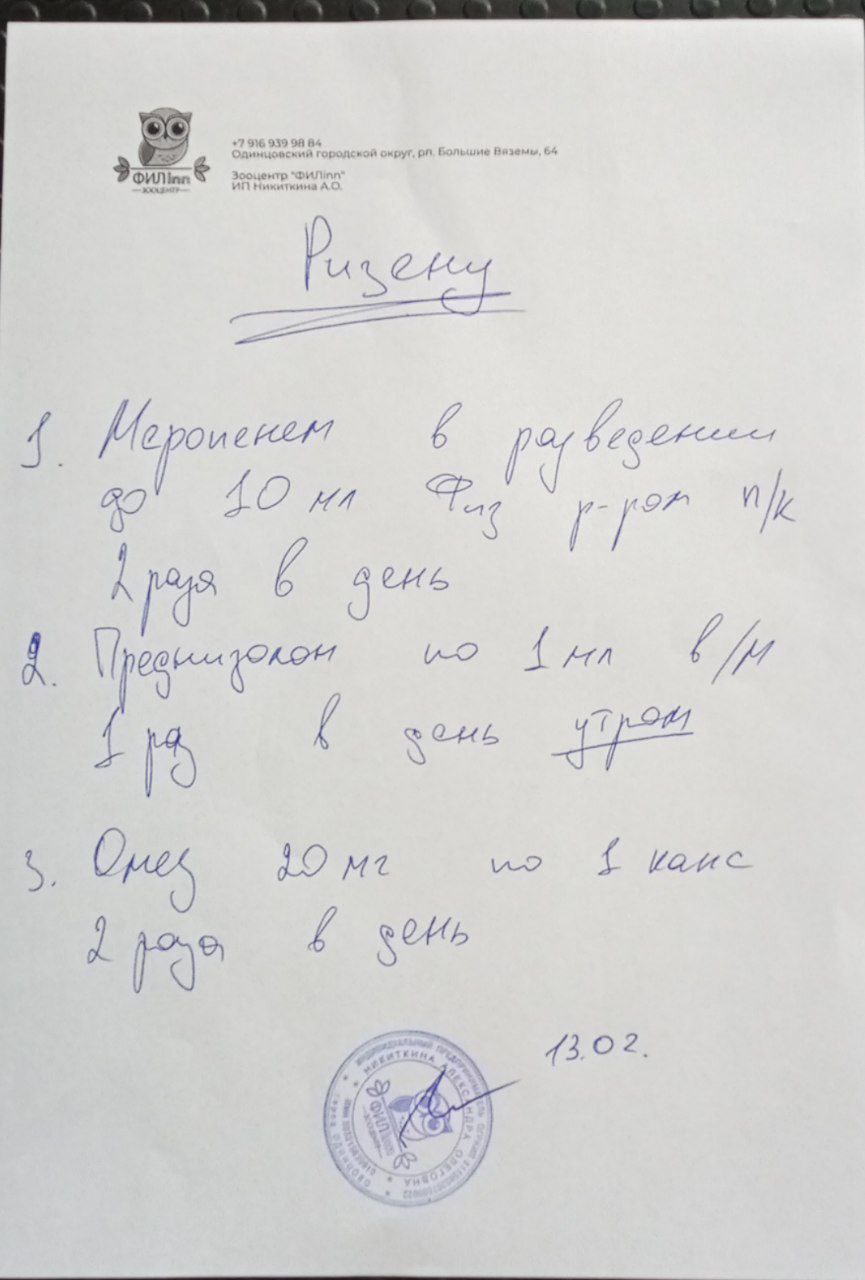 ФИЛinn
ЗООЦЕНТР
+7 916 939 98 84
Одинцовский городской округ, рп. Большие Вяземы, 64
Зооцентр "ФИЛinn"
ИП Никиткина А.О.
Ризену
1. Меропенем в разведении
до 10 мл Физ р-ром п/к
2 раза в день
2. Преднизолон по 1 мл в/м
1 раз в день утром
3. Омез 20 мг по 1 капс
2 раза в день
13.02.
ИНДИВИДУАЛЬНЫЙ ПРЕДПРИНИМАТЕЛЬ
НИКИТКИНА АЛЕКСАНДРА ОЛЕГОВНА
ФИЛinn
ЗООЦЕНТР